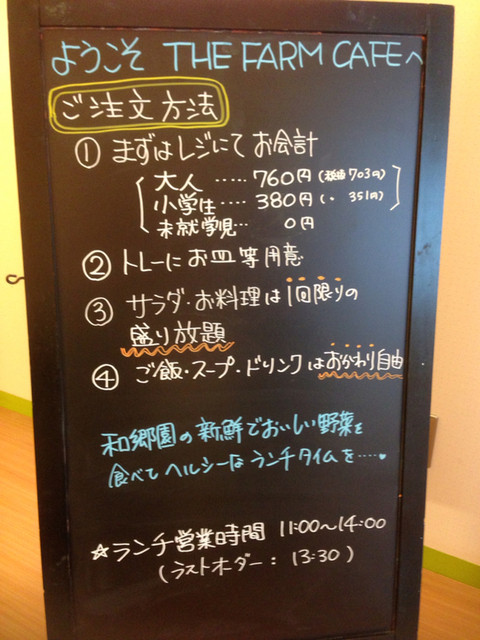 ようこそ THE FARM CAFEへ
ご注文方法
① まずはレジにて お会計
大人 ‥‥‥ 760円 (税抜703円)
小学生‥‥ 380円 (〃 351円)
未就学児‥ 0円
② トレーに お皿等用意
③ サラダ・お料理は 1回限りの
盛り放題
④ ご飯・スープ・ドリンクはおかわり自由
和郷園の新鮮でおいしい野菜を
食べて ヘルシーな ランチタイムを‥‥♥
☆ランチ営業時間 11:00～14:00
(ラストオーダー: 13:30)